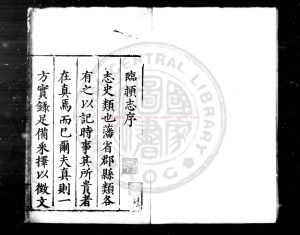 臨潁志序
志史類也藩省郡縣類各
有之以記時事其所貴者
在真焉而已爾夫真則一
方實錄足備采擇以徵文
CENTRAL LIBRARY